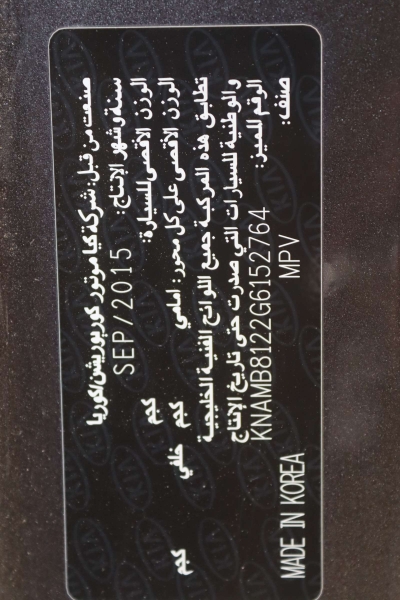 صنعت من قبل: شركة كيا موتورز كوربوريشن/كوريا
سنة وشهر الإنتاج: SEP/2015
الوزن الأقصى للسيارة: كجم
الوزن الأقصى على كل محور: امامي كجم خلفي كجم
تطابق هذه المركبة جميع اللوائح الفنية الخليجية
والوطنية للسيارات التي صدرت حتى تاريخ الإنتاج
الرقم المميز: KNAMB8122G6152764
صنف: MPV MADE IN KOREA